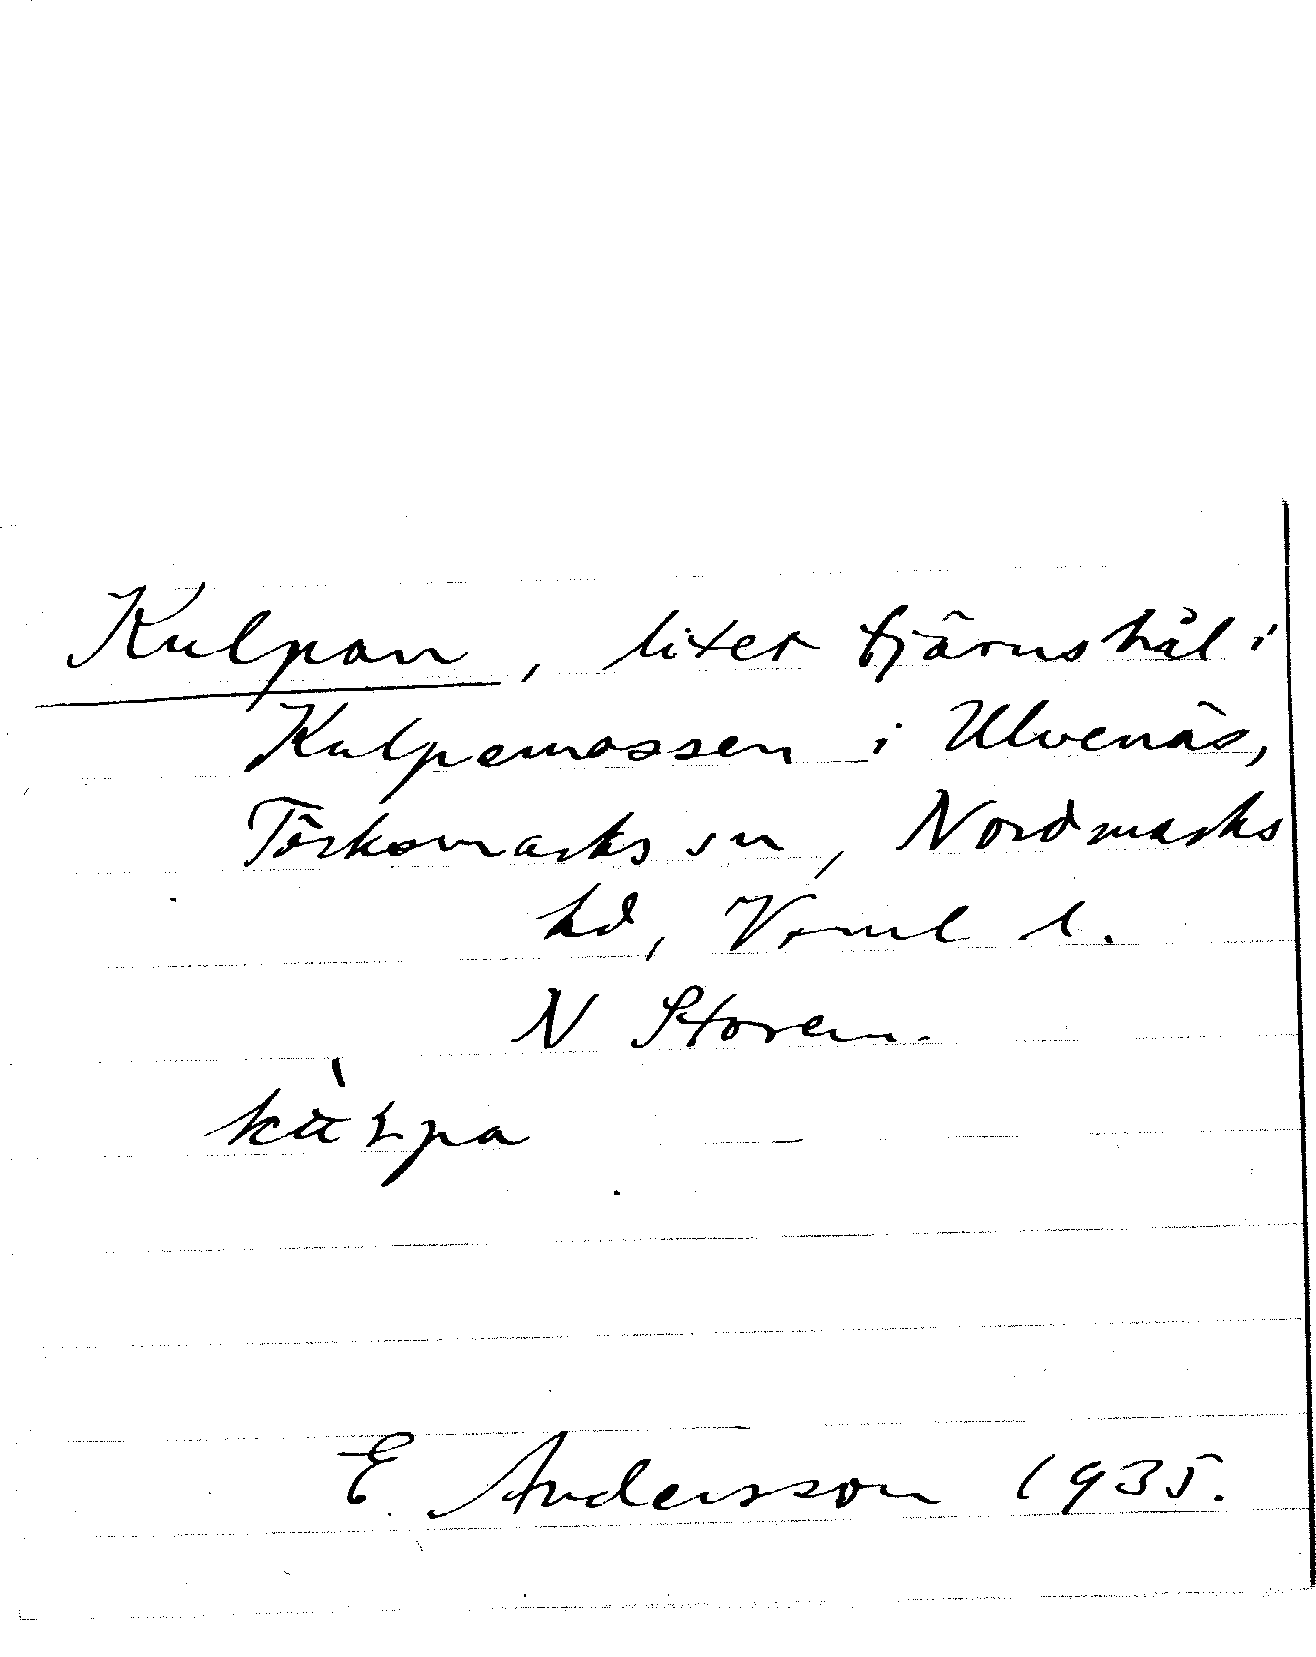 Kulpan, litet tjärnshål i
Kulpemossen i Ulvenäs,
Törksmarks sn, Nordmarks
hd, Vrml l.
N Storen.
E Andersson 1935.